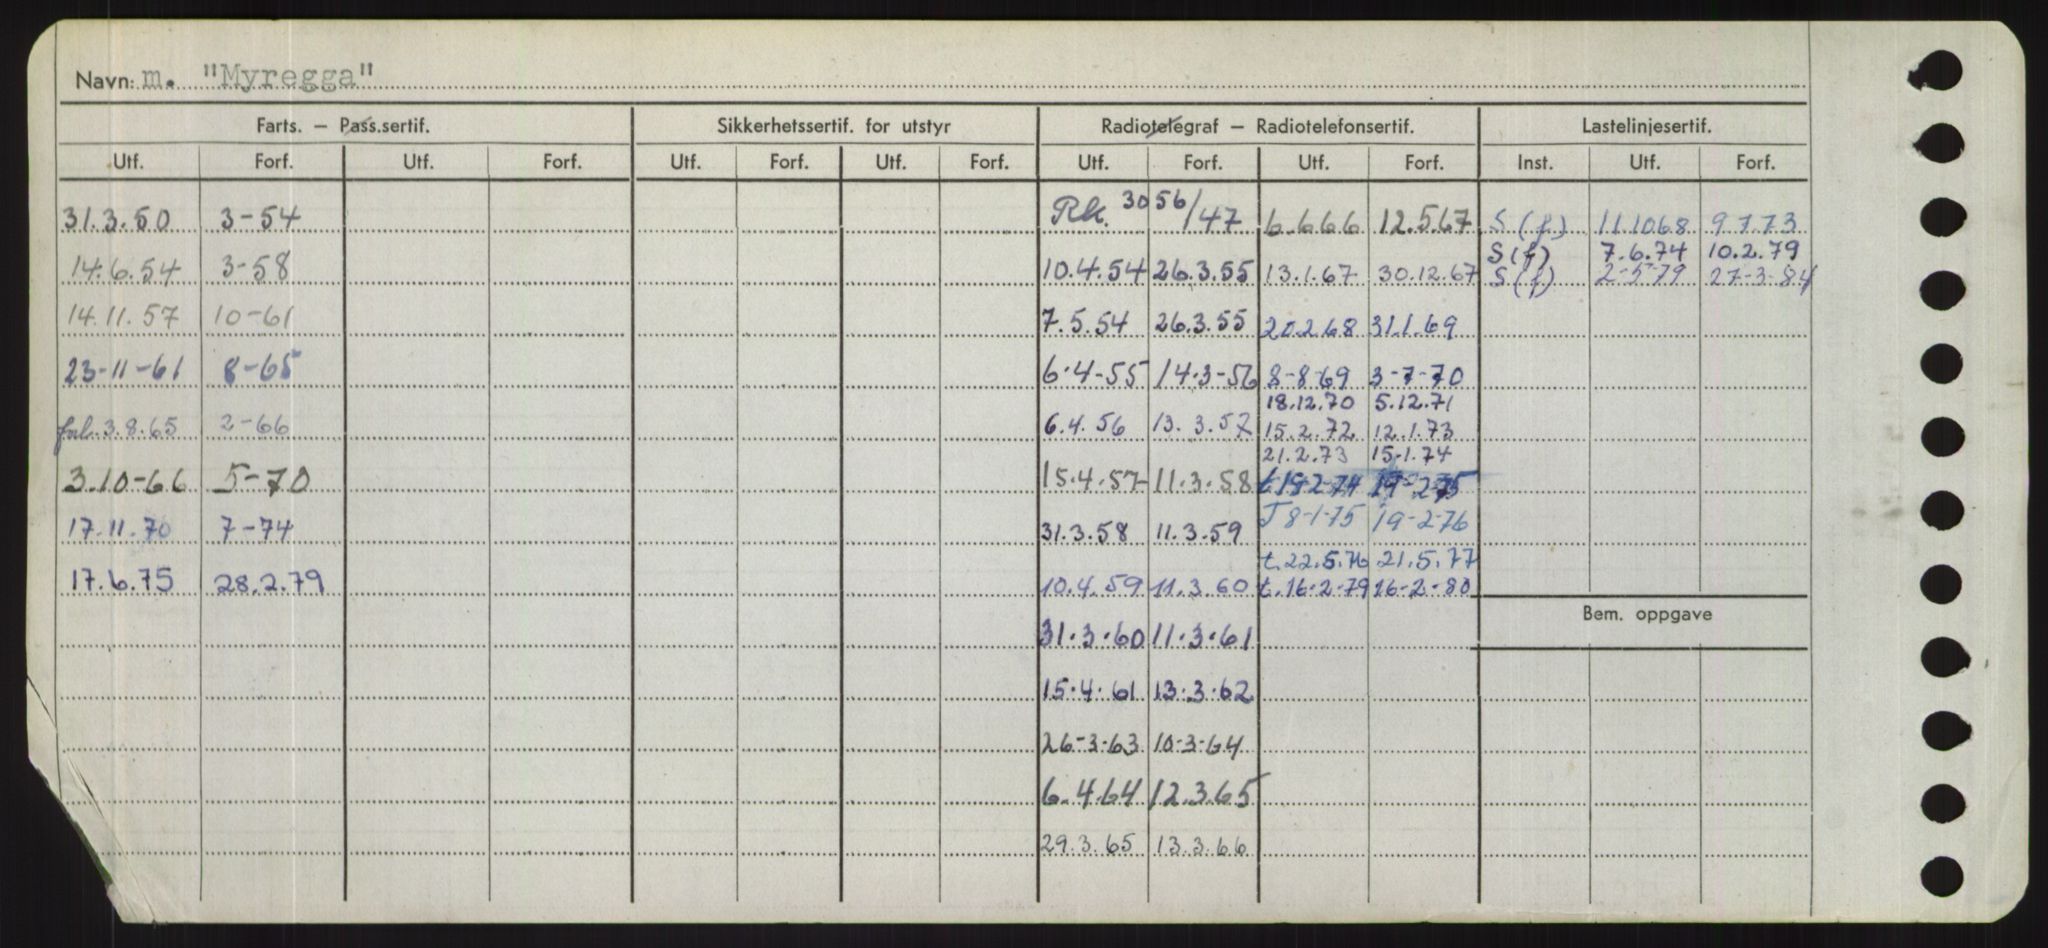 Navn: m. "Myregga"
Farts. — Pass.sertif. Sikkerhetssertif. for utstyr Radiotelegraf — Radiotelefonsertif. Lastelinjesertif.
Utf. Forf. Utf. Forf. Utf. Forf. Utf. Forf. Utf. Forf. Utf. Forf. Inst. Utf. Forf.
31.3.50 3-54 Rk. 3056/47 6.6.66 12.5.67 S (f) 11.10.68 9.7.73
S (f) 7.6.74 10.2.79
14.6.54 3-58 10.4.54 26.3.55 13.1.67 30.12.67 S (f) 2-5-79 27-3-84
14.11.57 10-61 7.5.54 26.3.55 20.2.68 31.1.69
23-11-61 8-65 6.4-55 14.3-56 8-8-69 3-7-70
18.12.70 5.12.71
forl. 3.8.65 2-66 6.4.56 13.3.57 15.2.72 12.1.73
21.2.73 15.1.74
3.10-66 5-70 15.4.57 11.3.58 t 19-2-74 19-2-75
T 8-1-75 19-2-76
17.11.70 7-74 31.3.58 11.3.59
t. 22.5.76 21.5.77
17.6.75 28.2.79 10.4.59 11.3.60 t. 16-2-79 16-2-80
Bem. oppgave
31.3.60 11.3.61
15.4.61 13.3.62
26-3-63 10-3-64
6.4.64 12.3.65
29.3.65 13.3.66